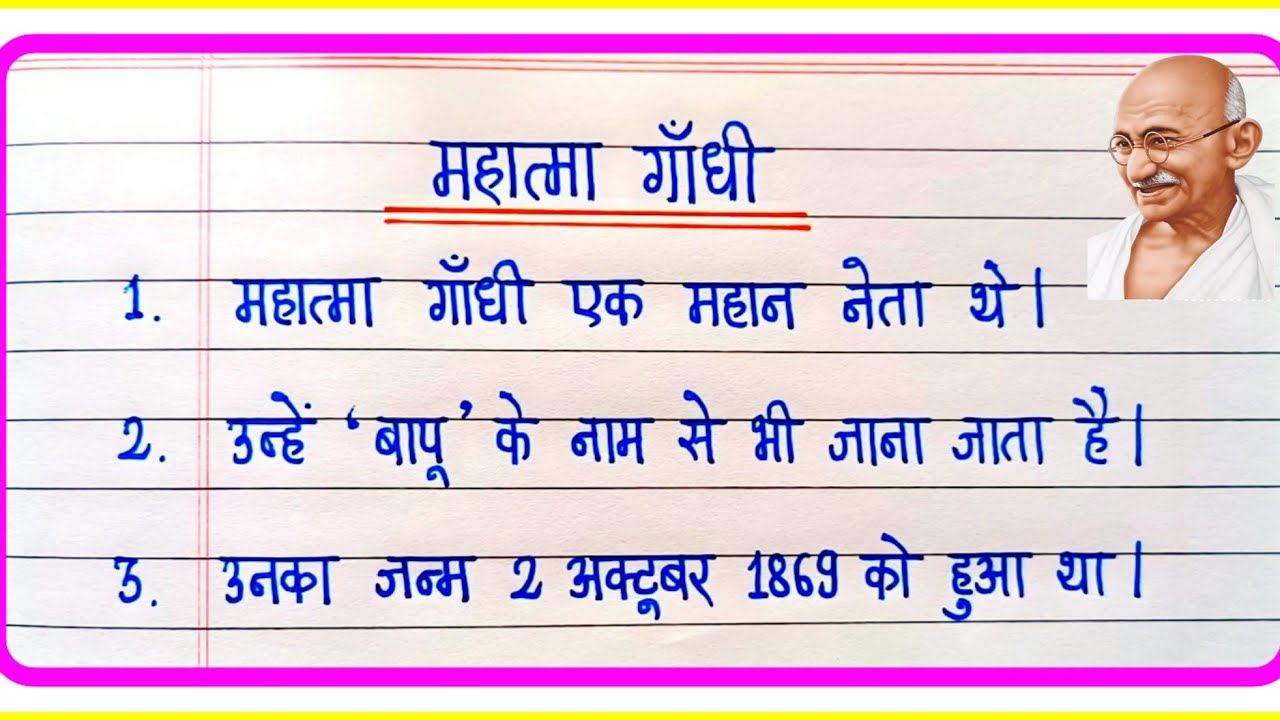 महात्मा गाँधी
1. महात्मा गाँधी एक महान नेता थे।
2. उन्हें ‘बापू’ के नाम से भी जाना जाता है।
3. उनका जन्म 2 अक्टूबर 1869 को हुआ था।